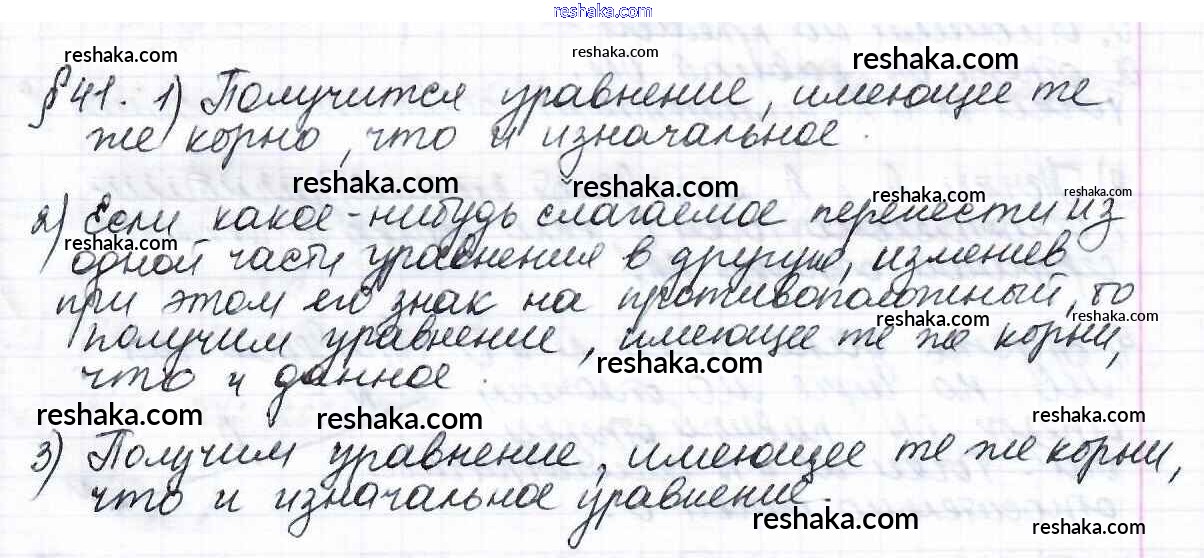 reshaka.com
reshaka.com
reshaka.com
reshaka.com
§ 41. 1) Получится уравнение, имеющее те
же корно, что и изначальное.
reshaka.com
reshaka.com
reshaka.com
reshaka.com
2) Если какое-нибудь слагаемое перенести из
reshaka.com
одной части уравнения в другую, изменив
при этом его знак на противоположный, то
reshaka.com
reshaka.com
получим уравнение, имеющее те же корни,
reshaka.com
что и данное.
reshaka.com
reshaka.com
reshaka.com
3) Получим уравнение, имеющее те же корни,
что и изначальное уравнение.
reshaka.com
reshaka.com